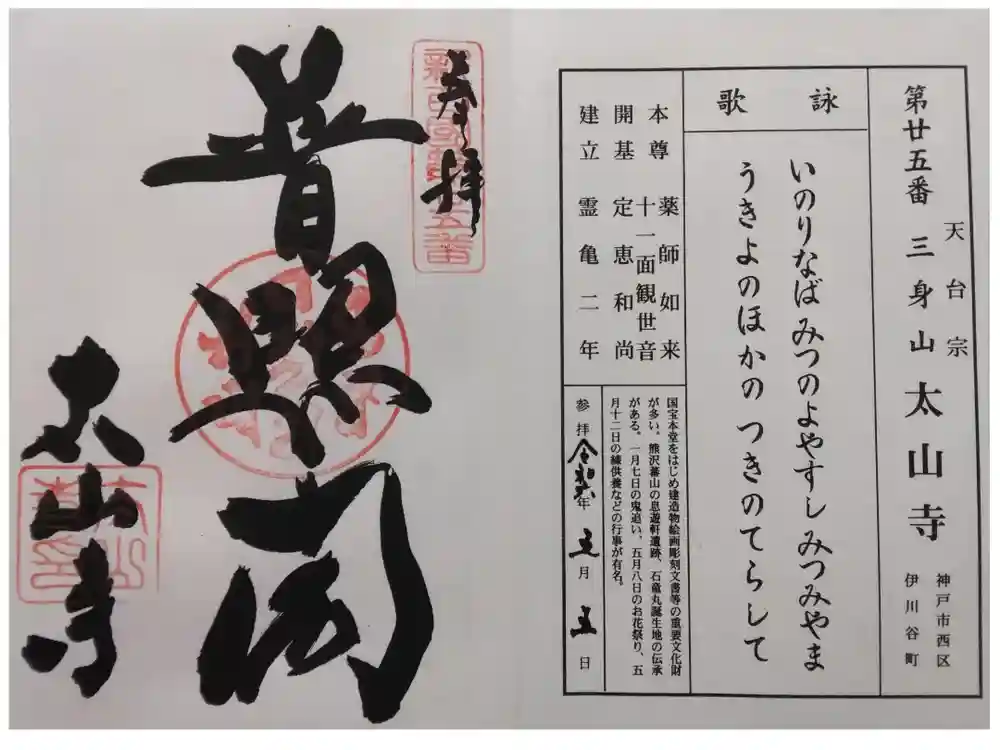 第廿五番 三身山 太山寺
天台宗
神戸市西区
伊川谷町
詠歌
いのりなばみつのよやすしみつみやま
うきよのほかのつきのてらして
本尊 薬師如来
十一面観世音
開基 定恵和尚
建立 霊亀二年
国宝本堂をはじめ建造物絵画彫刻文書等の重要文化財
が多い。熊沢蕃山の息遊軒遺跡、石童丸誕生地の伝承
がある。一月七日の鬼追い、五月八日のお花祭り、五
月十二日の練供養などの行事が有名。
参拝 令和 年 五月 五日
奉拝
普照閣
太山寺